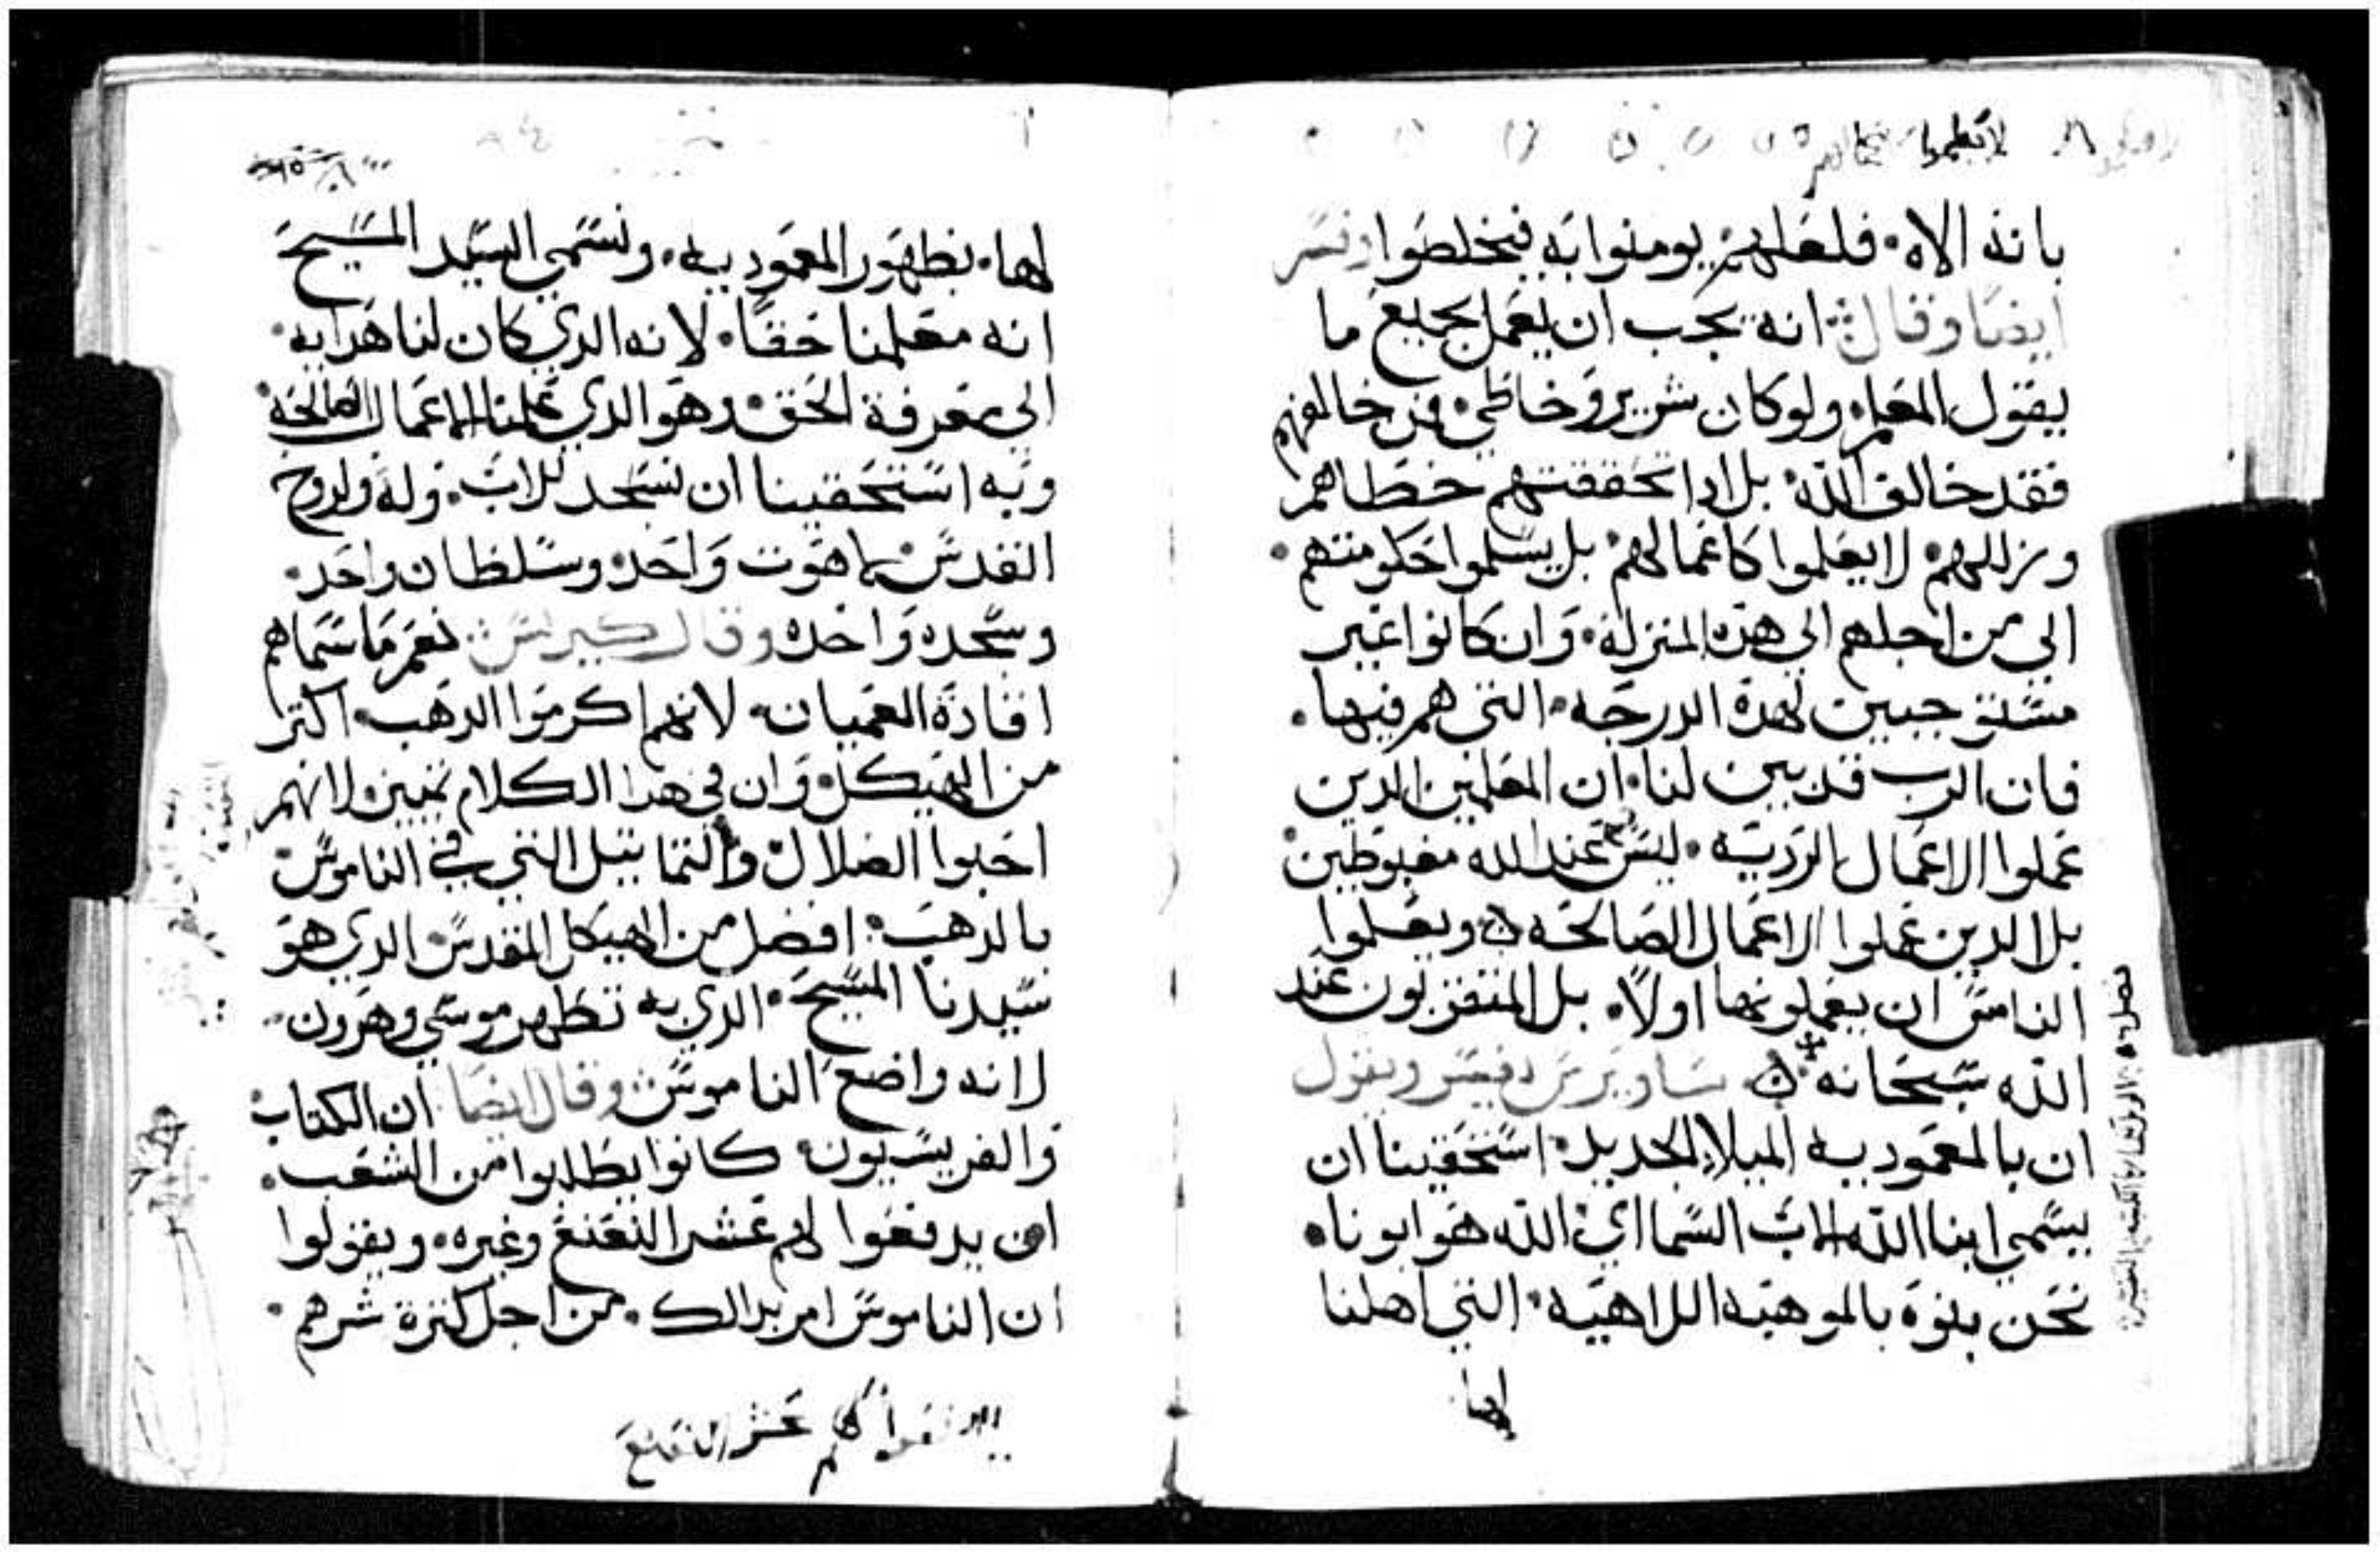 لا تعلموا
بانه الاه۰ فلعلهم يومنوا به فيخلصوا وفسر
ايضا وقال انه يجب ان يعمل بجميع ما
يقول المعلم ولو كان شرير وخاطي۰ فمن خالفهم
فقد خالف الله۰ بل ادا تحققتهم خطاهم
وزللهم۰ لا يعلموا كاعمالهم۰ بل يسلموا حكومتهم۰
الي من اجلهم الي هذه المنزله۰ وان كانوا غير
مستوجبين لهدة الدرجه۰ التي هم فيها۰
فان الرب قد بين لنا۰ ان المعلمين الدين
عملوا الاعمال الرديه۰ ليس عند الله مغبوطين۰
بلا الدين عملوا الاعمال الصالحه ويعلموا
الناس ان يعملونها اولاً۰ بل المتقربون عند
الله سبحانه ساويرس يفسر ويقول
ان بالمعموديه الميلاد الجديد۰ استحقينا ان
يسمي ابنا الله الاب السما اي الله هو ابونا۰
نحن بنوه بالموهبه اللاهيه۰ التي اهلنا
لها
لها۰ بطهور المعموديه۰ ونسمي السيد المسيح
انه معلمنا حقاً۰ لانه الدي كان لنا هدايه۰
الي معرفة الحق۰ وهو الدي علمنا الاعمال الصالحه۰
وبه استحقينا ان نسجد للاب۰ وله ولروح
القدس لاهوت واحد۰ وسلطان واحد۰
وسجده واحده وقال كيرلس نعم ما سماهم
اقادة العميان۰ لانهم اكرموا الدهب۰ اكتر
من الهيكل۰ وان في هدا الكلام تبيين۰ لانهم
احبوا الضلال۰ والتماتيل التي في الناموس۰
بالدهب۰ افضل من الهيكل المقدس۰ الدي هو
سيدنا المسيح۰ الدي به تطهر موسي وهرون۰
لانه واضع الناموس وقال ايضا ان الكتاب۰
والفريسيون۰ كانوا يطلبوا من الشعب۰
ان يدفعوا لهم عشر النعنع وغيره۰ ويقولوا
ان الناموس امر بدالك۰ من اجل كترة شرهم۰
يدفعوا لهم عشر النعنع